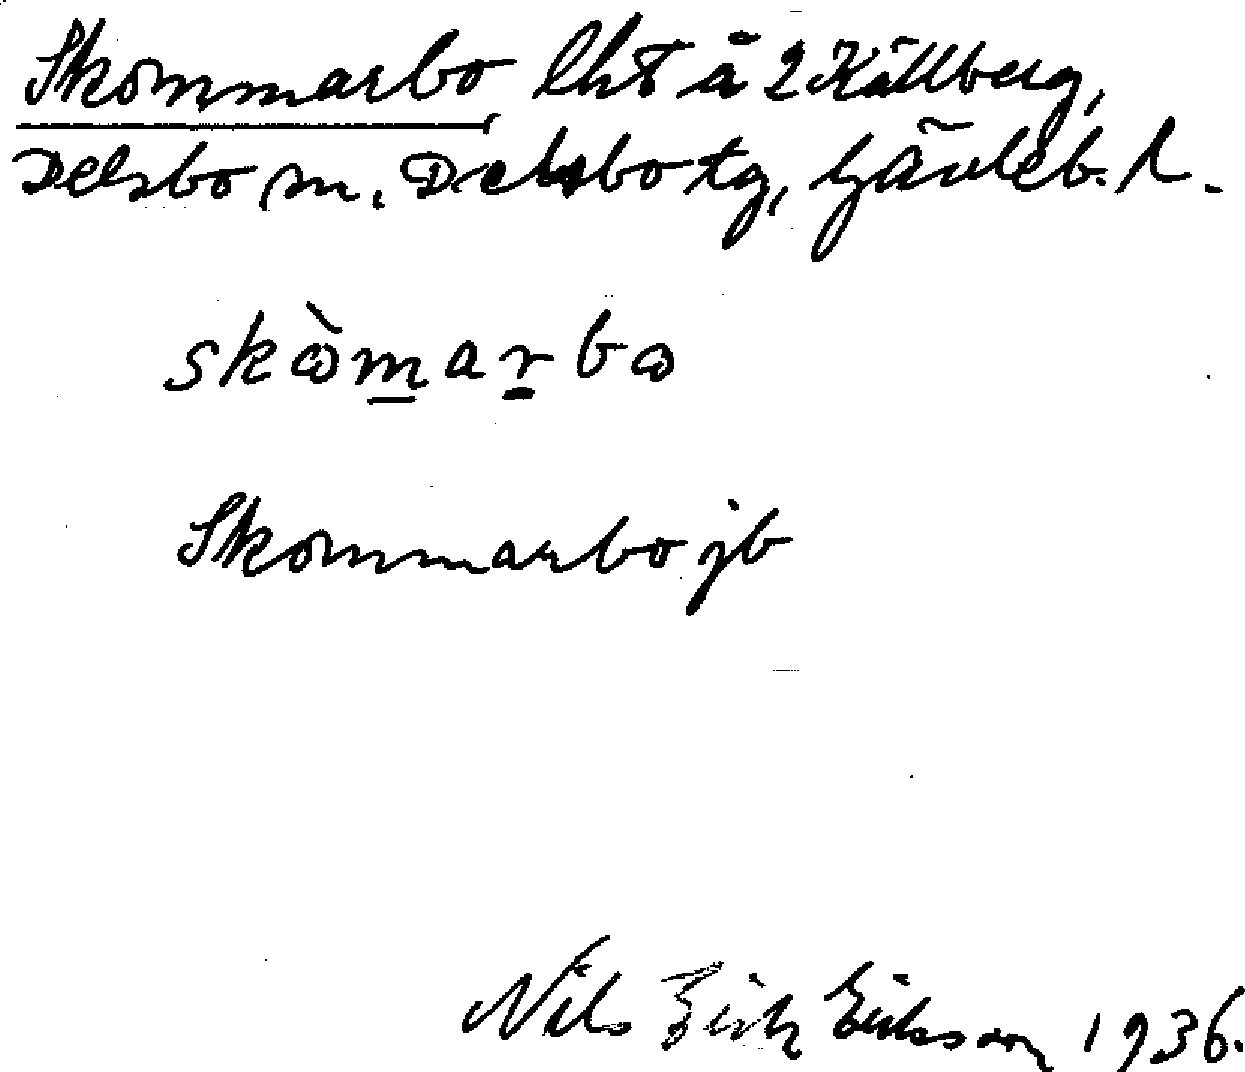 Skommarbo, lht å 2 Källberg,
Delsbo sn. Delsbo tg, Gävleb. l.
skòmarbo
Skommarbo jb
Nils Erik Eriksson 1936.